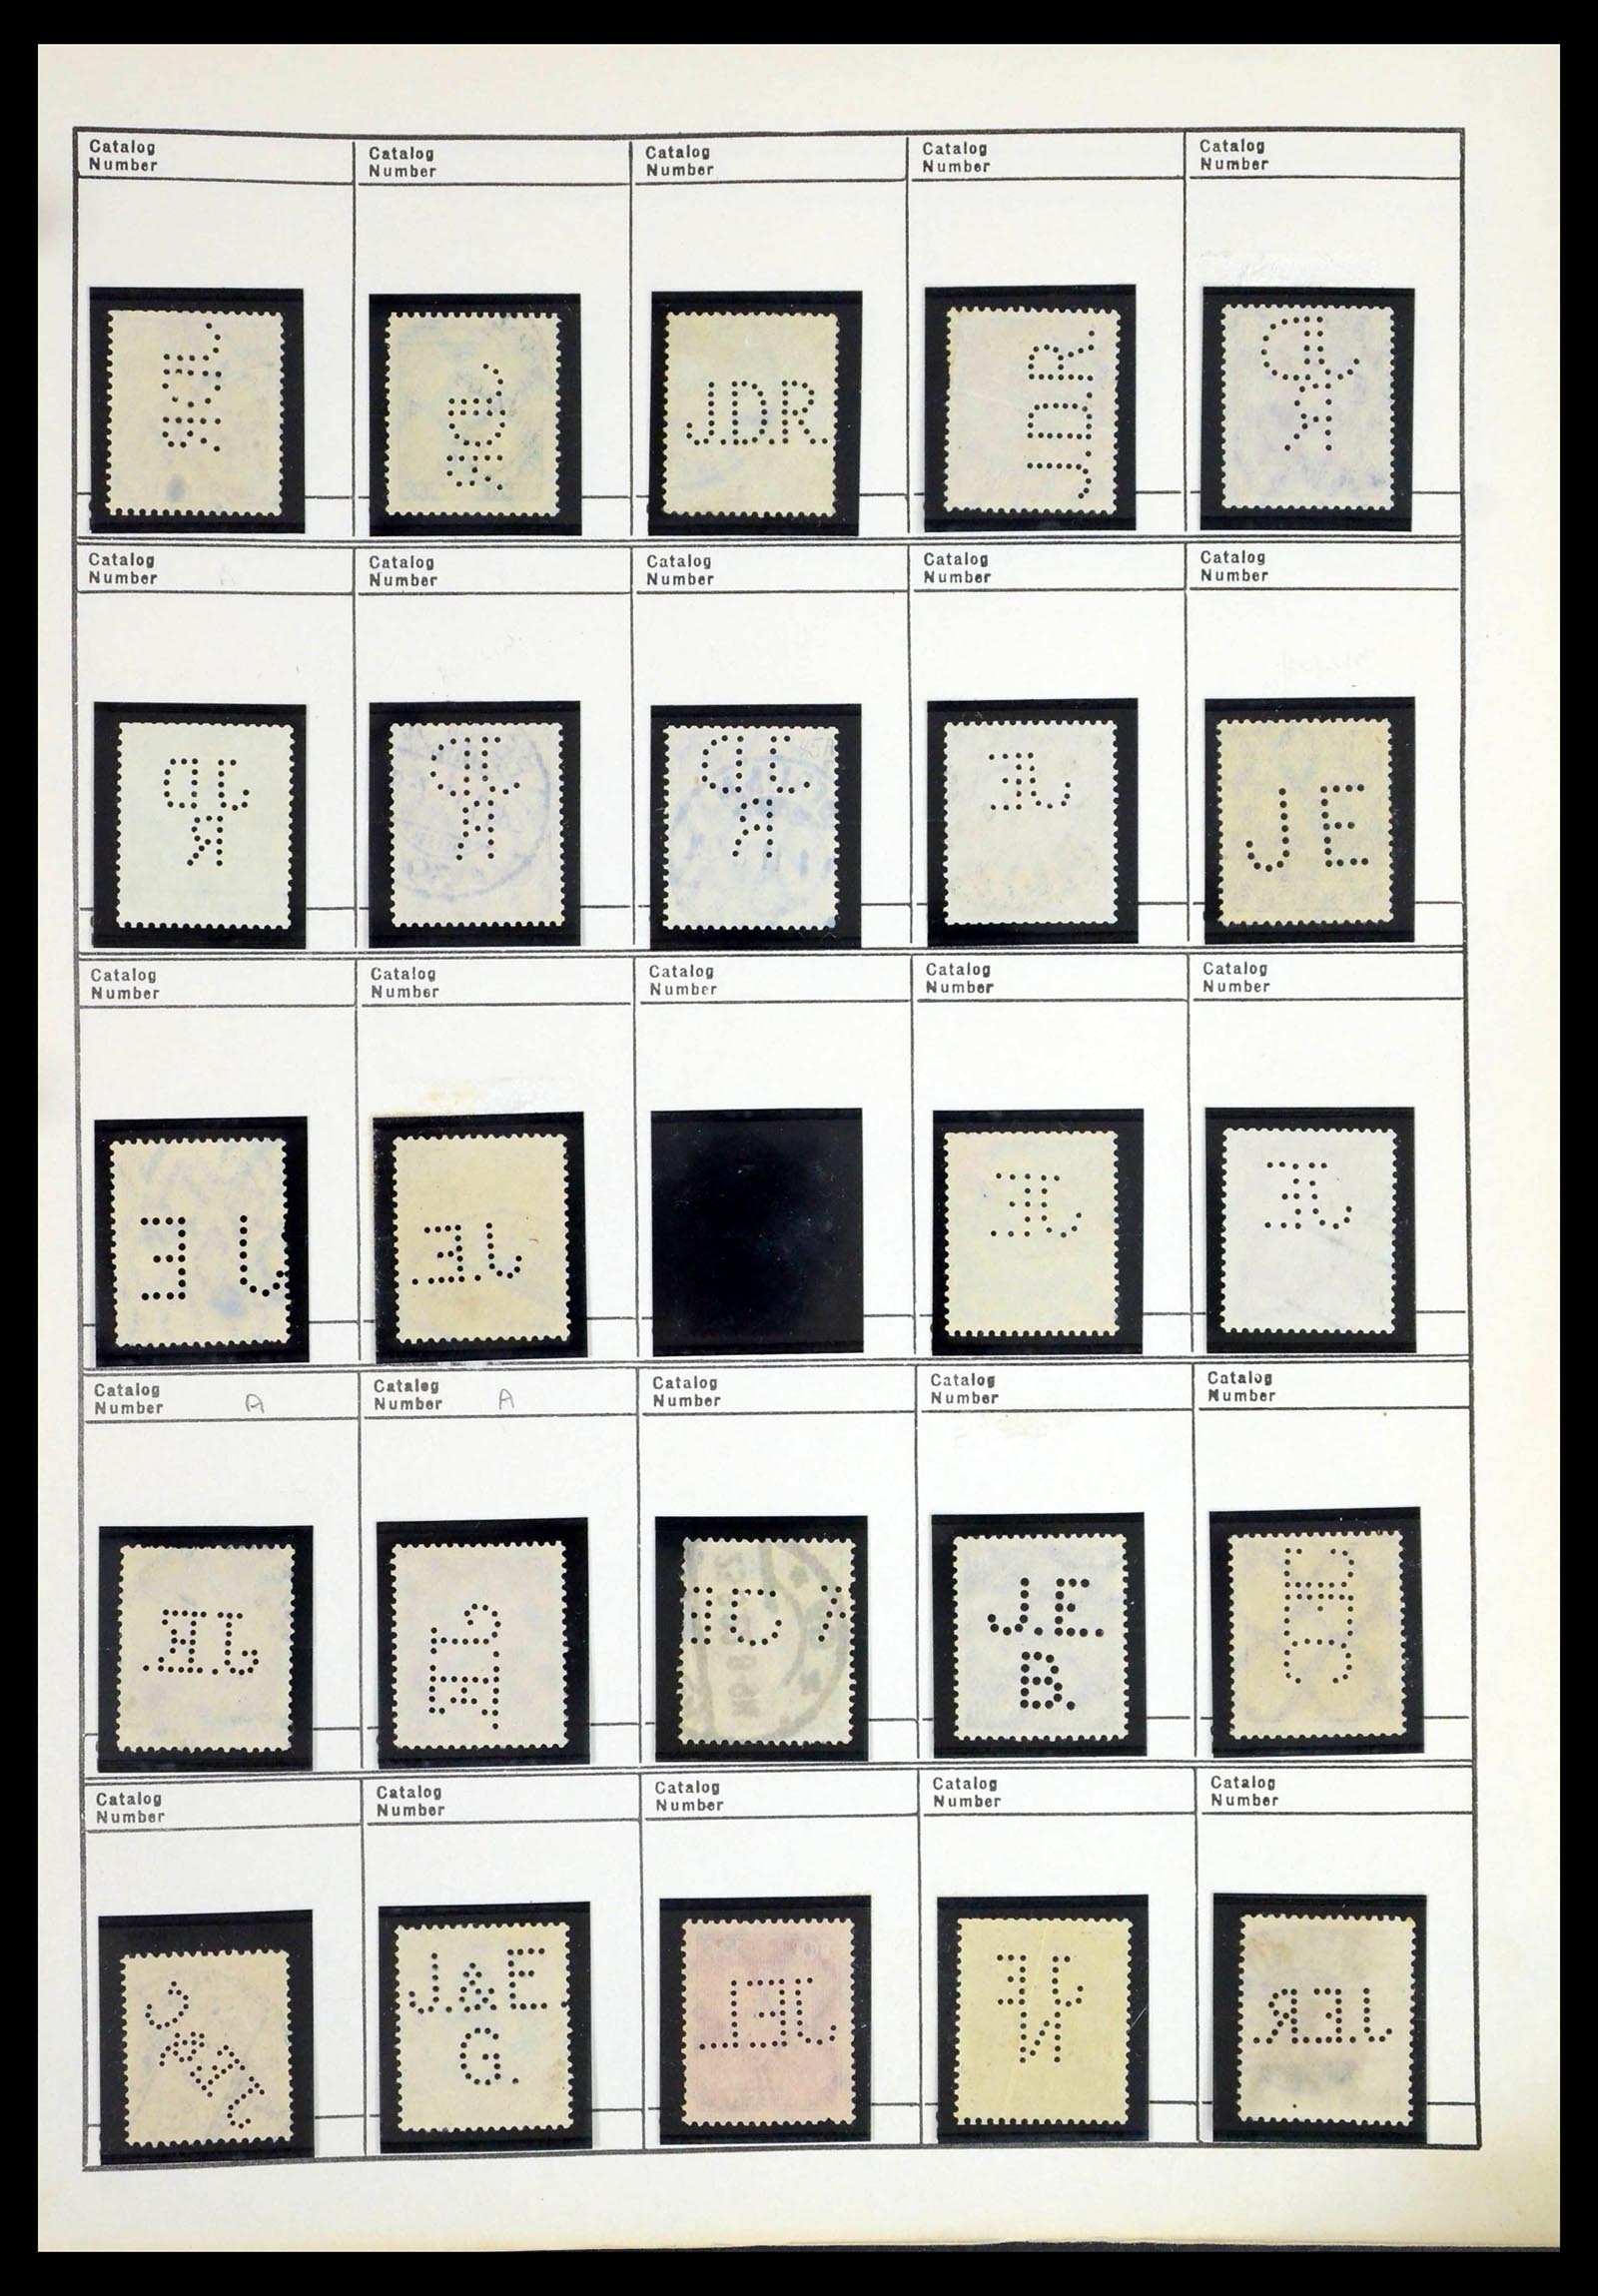 Catalog
Number
Catalog
Number
Catalog
Number
Catalog
Number
Catalog
Number
J.D.R.
J.D.R
JD
K
Catalog
Number
Catalog
Number
Catalog
Number
Catalog
Number
Catalog
Number
JD
K
JD
R
JE
JE
Catalog
Number
Catalog
Number
Catalog
Number
Catalog
Number
Catalog
Number
JE
J.E.
JE
JE
Catalog
Number A
Catalog
Number A
Catalog
Number
Catalog
Number
Catalog
Number
J.E.
J.E.
B.
Catalog
Number
Catalog
Number
Catalog
Number
Catalog
Number
Catalog
Number
J.&E.
G.
JEL
JF
N
J.E.R.